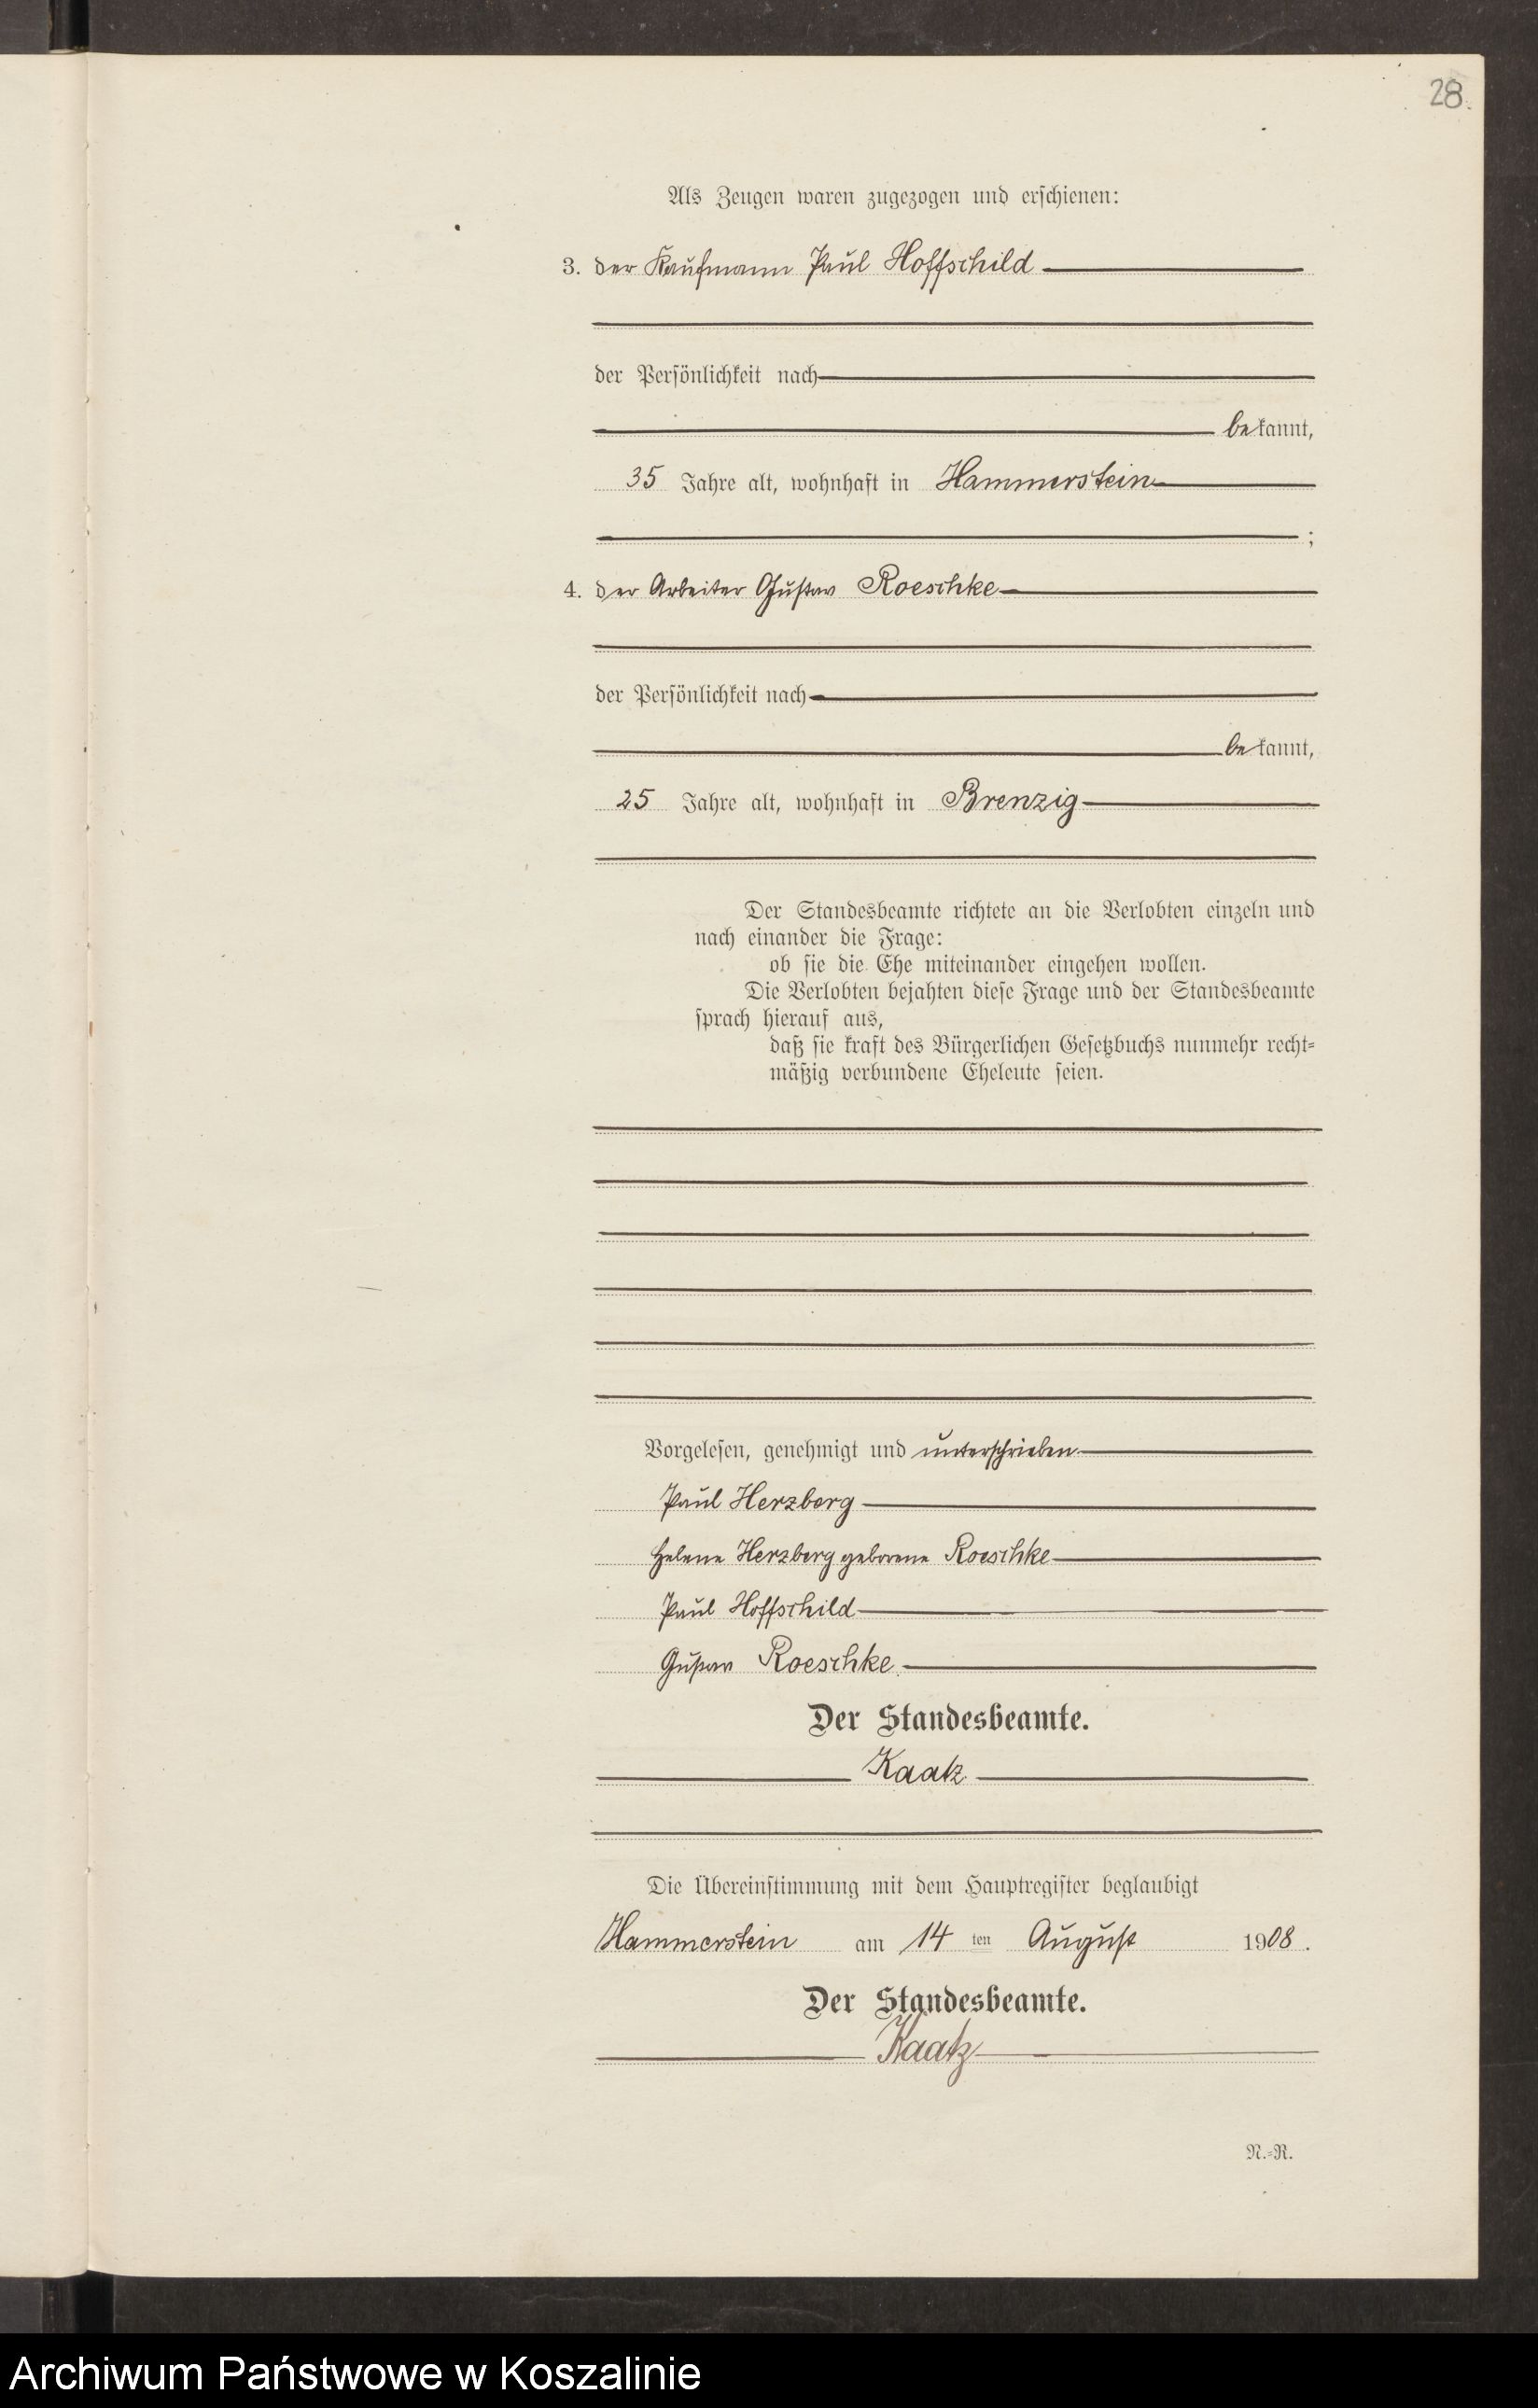 28.
Als Zeugen waren zugezogen und erschienen:
3. der Kaufmann Paul Hoffschild
der Persönlichkeit nach
bekannt,
35 Jahre alt, wohnhaft in Hammerstein
;
4. der Arbeiter Gustav Roeschke
der Persönlichkeit nach
bekannt,
25 Jahre alt, wohnhaft in Brenzig
Der Standesbeamte richtete an die Verlobten einzeln und
nach einander die Frage:
ob sie die Ehe miteinander eingehen wollen.
Die Verlobten bejahten diese Frage und der Standesbeamte
sprach hierauf aus,
daß sie kraft des Bürgerlichen Gesetzbuchs nunmehr recht-
mäßig verbundene Eheleute seien.
Vorgelesen, genehmigt und unterschrieben
Paul Herzberg
Helene Herzberg geborene Roeschke
Paul Hoffschild
Gustav Roeschke.
Der Standesbeamte.
Kaatz
Die Übereinstimmung mit dem Hauptregister beglaubigt
Hammerstein am 14 ten August 1908.
Der Standesbeamte.
Kaatz
N.-R.
Archiwum Państwowe w Koszalinie